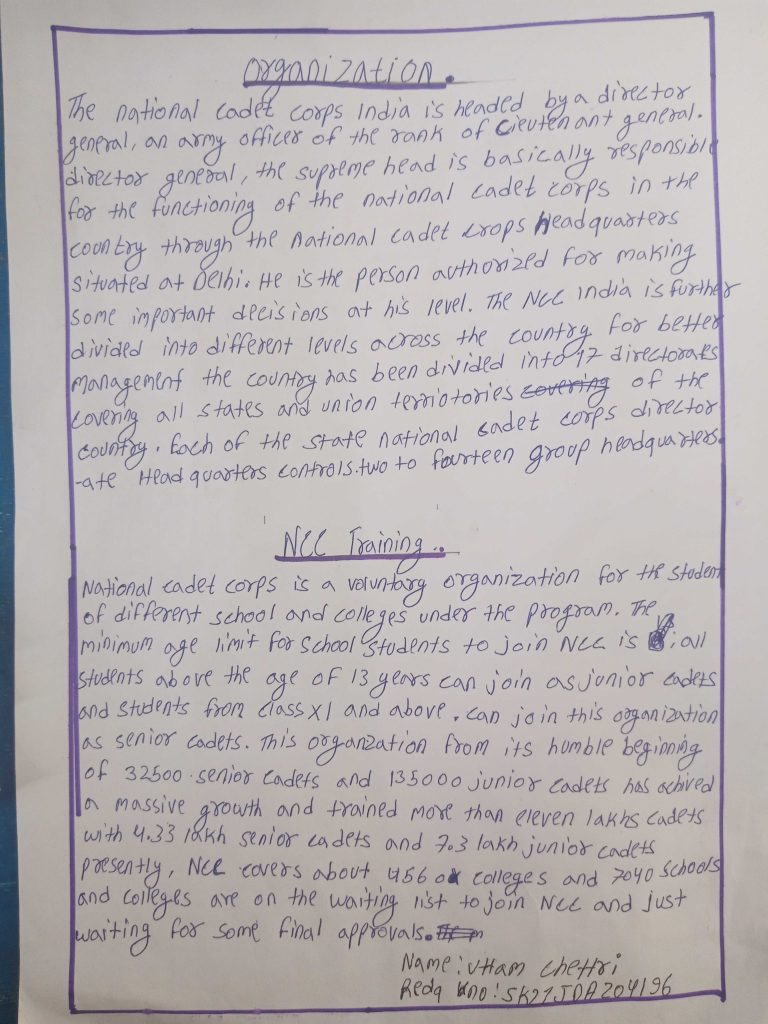 Organization.
The national cadet corps India is headed by a director
general, an army officer of the rank of Cieutenant general.
director general, the supreme head is basically responsible
for the functioning of the national cadet corps in the
country through the National cadet crops Headquarters
situated at Delhi. He is the person authorized for making
some important decisions at his level. The NCC India is further
divided into different levels across the country for better
management the country has been divided into 17 directorates
covering all states and union terriotories of the
country. Each of the state national cadet corps director
-ate Head quarters controls.two to fourteen group headquarters.
NCC Training..
National cadet corps is a voluntary organization for the student
of different school and colleges under the program. The
minimum age limit for school students to join NCC is 13; all
students above the age of 13 years can join as junior cadets
and students from class XI and above. can join this organization
as senior cadets. This organzation from its humble beginning
of 32500 senior cadets and 135000 junior cadets has achived
a massive growth and trained more than eleven lakhs cadets
with 4.33 lakh senior cadets and 7.3 lakh junior cadets
presently, NCC covers about 4560 colleges and 7040 schools
and colleges are on the waiting list to join NCC and just
waiting for some final approvals.
Name: Uttam Chettri
Redg no: SK21JDA204196